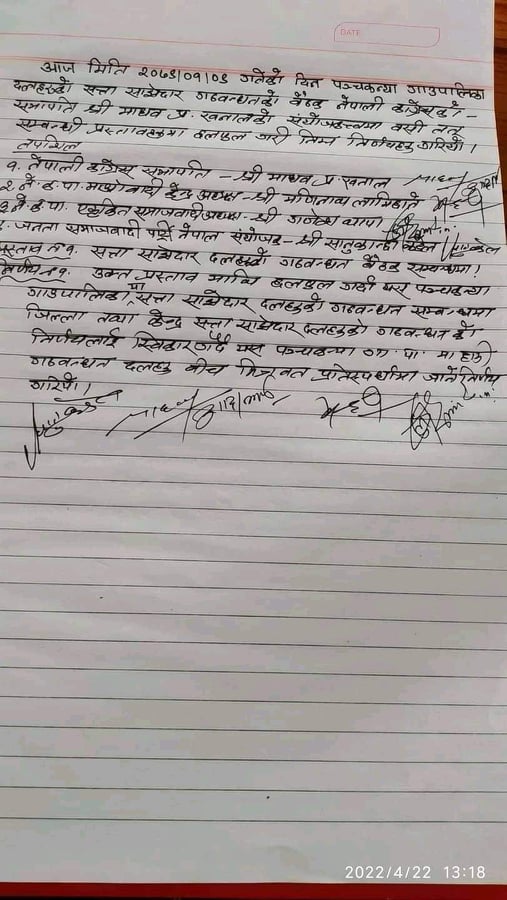 DATE
आज मिति २०७९/०१/०९ गतेका दिन पञ्चकन्या गाउपालिका
दलहरुको सत्ता साझेदार गठवन्धनको बैठक नेपाली काँग्रेसका
सभापति श्री माधव प्र. खनालको संयोजकत्वमा वसी तत्
सम्बन्धी प्रस्तावहरुमा छलफल गरी निम्न निर्णयहरु गरियो।
तपशिल
१. नेपाली काँग्रेस सभापति - श्री माधव प्र. खनाल
२ ने. क. पा. माओवादी केन्द्र अध्यक्ष - श्री मणिनाथ लामिछाने
३ ने. क. पा. एकिकृत समाजवादी अध्यक्ष - श्री थापा
जनता समाजवादी पार्टी नेपाल संयोजक - श्री
प्रस्ताव नं १. सत्ता साझेदार दलहरुको गठवन्धन बैठक सम्बन्धमा।
निर्णय नं १. उक्त प्रस्ताव माथि छलफल गर्दा यस पञ्चकन्या
गाउपालिका मा सत्ता साझेदार दलहरुको गठवन्धन सम्बन्धमा
जिल्ला तथा केन्द्र सत्ता साझेदार दलहरुको गठवन्धन को
निर्णयलाई स्विकार गर्दै यस पञ्चकन्या गा. पा. मा हामी
गठवन्धन दलहरु बीच मित्रवत प्रतिस्पर्धामा जाने निर्णय
गरियो।
2022/4/22 13:18